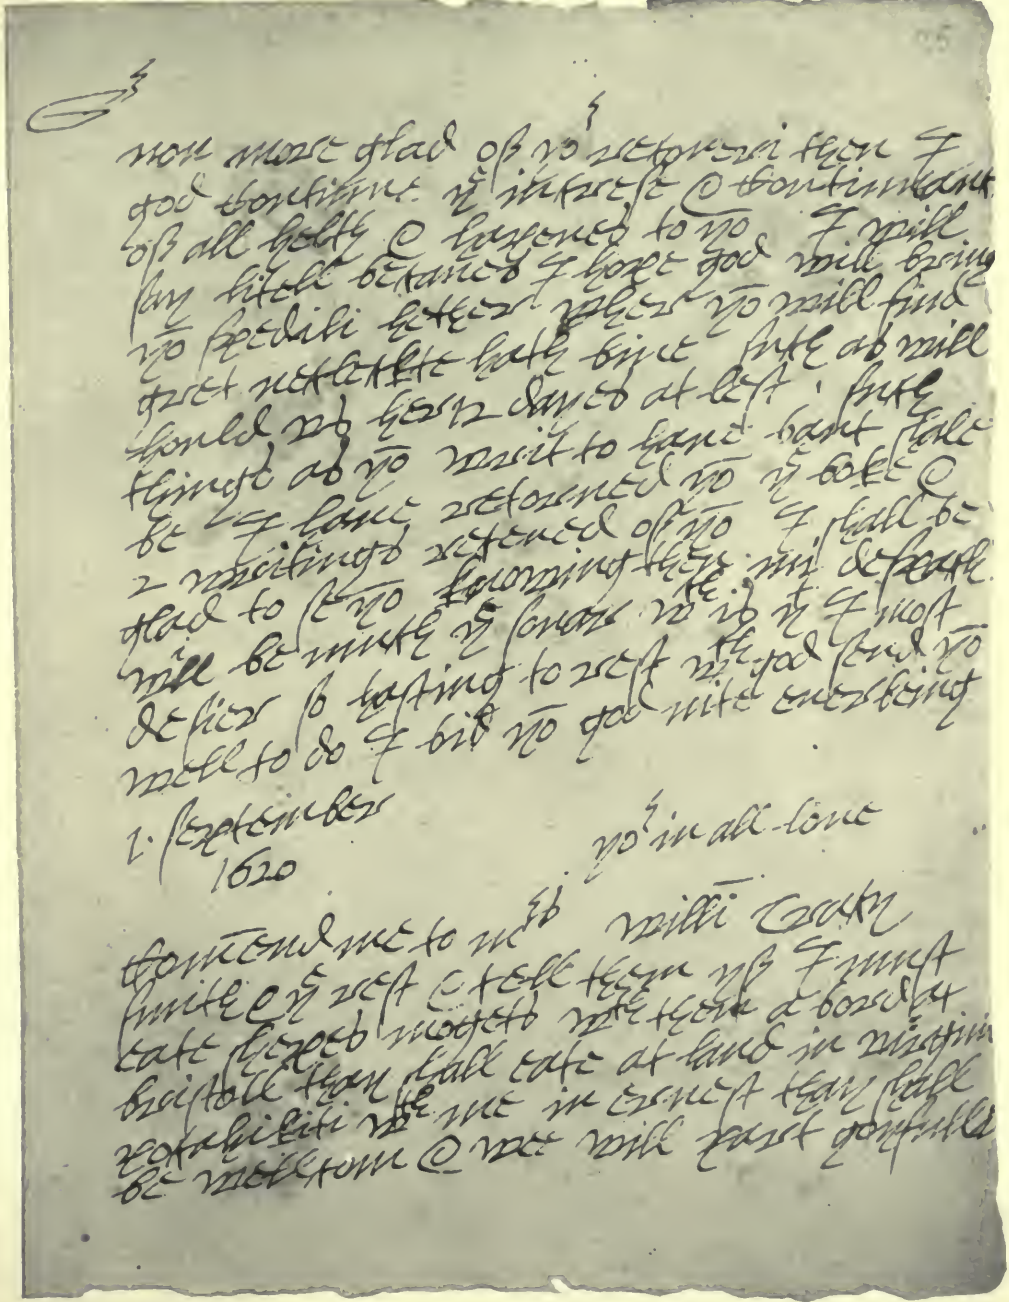 Sr
non more glad of yor retorn then I
god continue ye increse & continuance
of all helth & hapenes to yo I will
say litell becaues I hope god will bring
yo spedili hether wher yo will find
gret neclekte hath bine such as will
hould us her 12 dayes at lest. such
things as yo writ to have bant shale
be I have retorned yo ye boke &
2 writings receved of yo I shall be
glad to se yo knowing then mi dispach
will be much ye sonar wch is yt I most
desier so hasting to rest wth god send yo
well to do I bid yo god nite ever being
1. September
1620
yor in all love
Willī Tracy
Comēnd me to mrs
smith & ye rest & tell them yf I must
eate shepes mogets wth them a bord at
bristoll thay shall eate at land in virginia
potahikiti wth me in ernest thay shall
be wellcom & wee will part